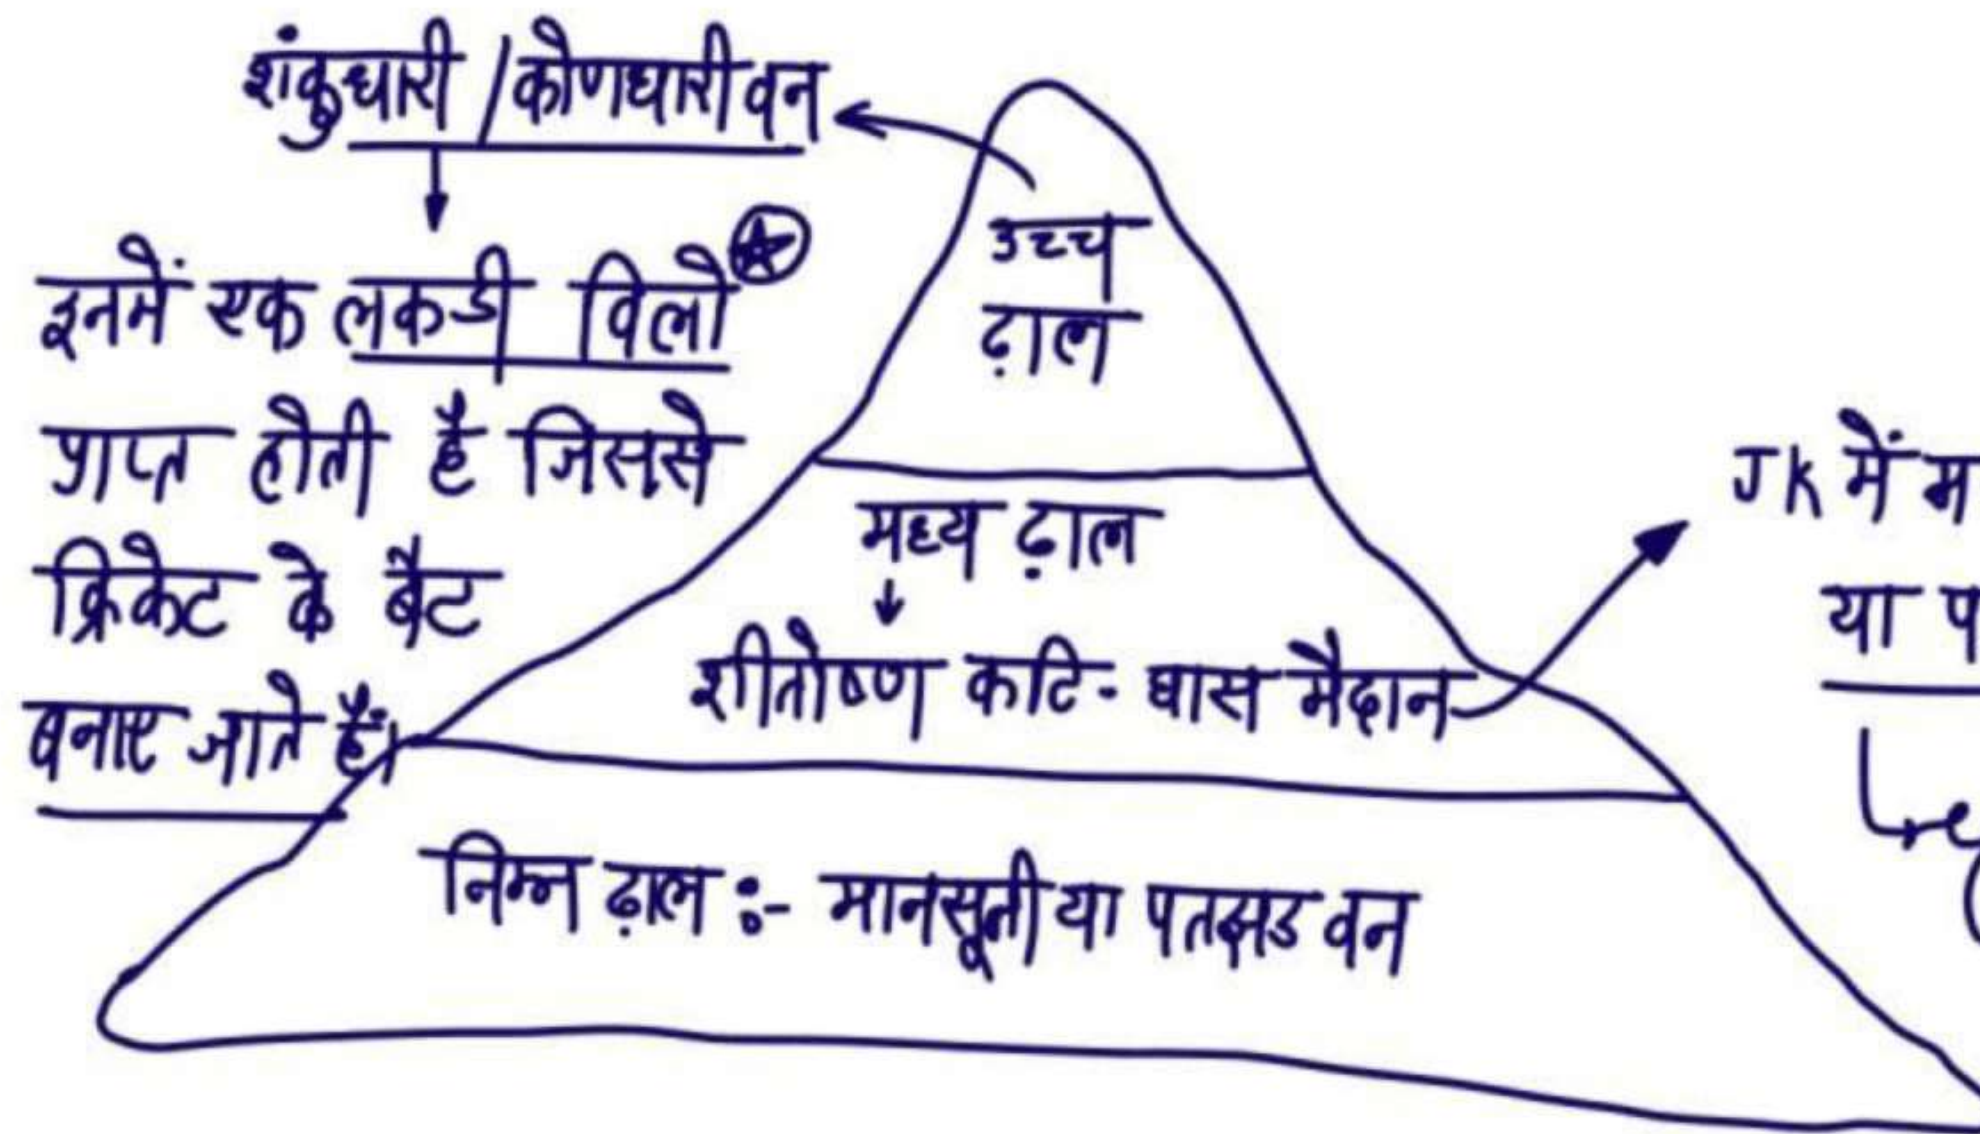 शंकुधारी / कोणधारी वन
इनमें एक लकडी विलो
प्राप्त होती है जिससे
क्रिकेट के बैट
बनाए जाते हैं।
उच्च
ढ़ाल
मध्य ढ़ाल
शीतोष्ण कटि- घास मैदान
निम्न ढ़ाल :- मानसूनी या पतझड वन
JK में म
या प